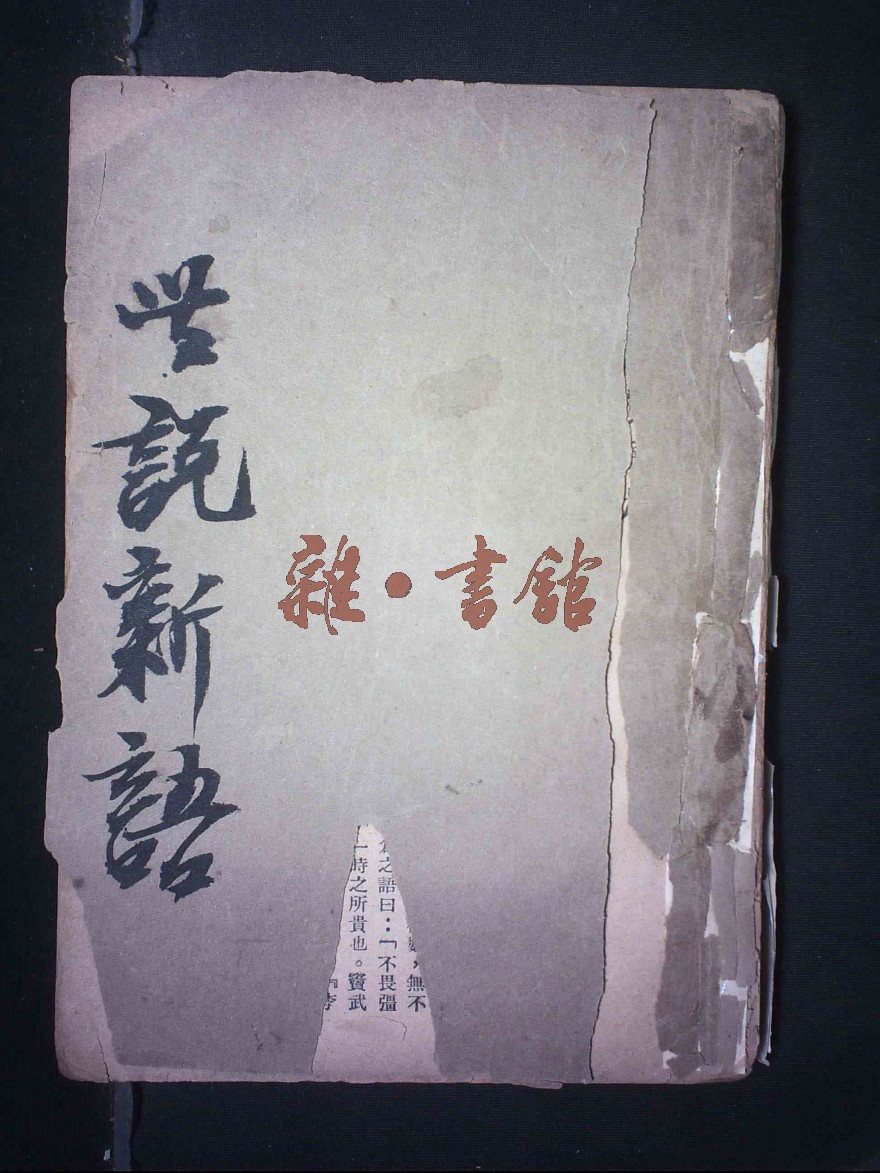 世說新語
雜·書館
無不
之語曰：「不畏彊
一時之所貴也。贇武
『李